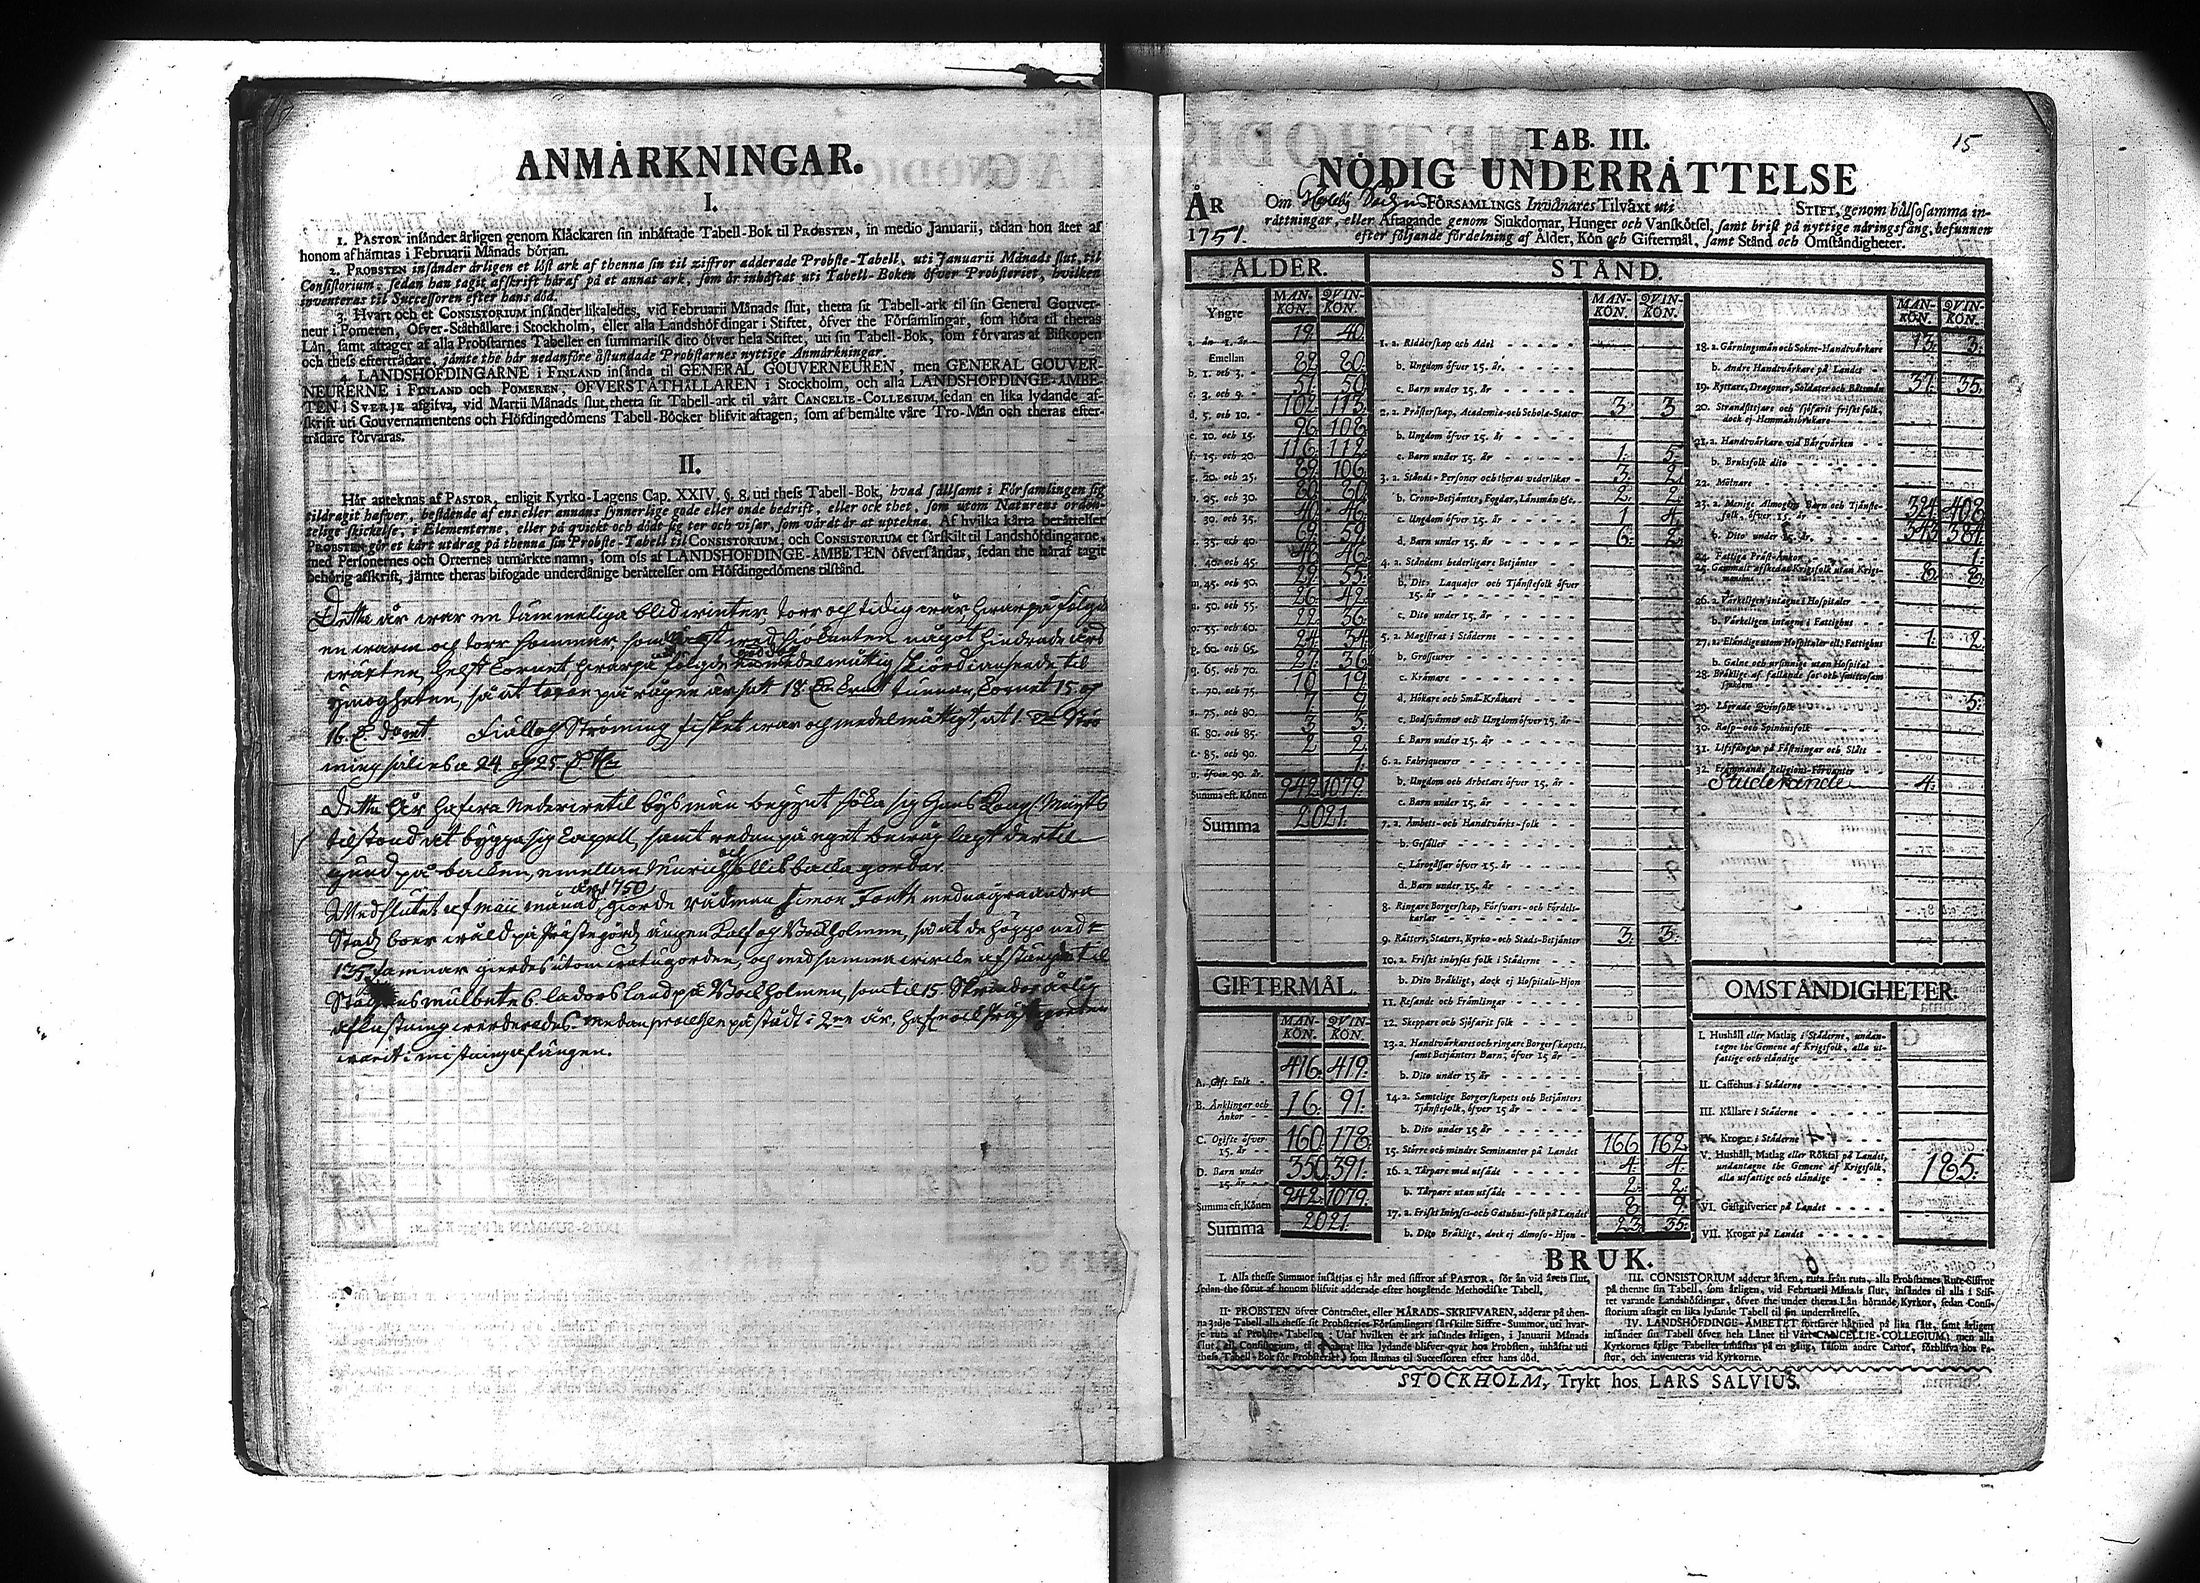 ANMÅRKNINGAR.
I.
1. PASTOR insånder årligen genom Klåckaren sin inhåftade Tabell-Bok til PROBSTEN, in medio Januarii, tådan hon åter af
honom afhåmtas i Februarii Månads början.
2. PROBSTEN insånder årligen et löst ark af thenna sin til ziffror adderade Probste-Tabell, uti Januarii Månads slut, til
Consistorium, sedan han tagit afskrift håraf på et annat ark, som år inhåftat uti Tabell-Boken öfver Probsteriet, hvilken
inventeras til Successoren efter hans död.
3. Hvart och et CONSISTORIUM insånder likaledes, vid Februarii Månads slut, thetta sit Tabell-ark til sin General Gouver-
neur i Pomeren, Öfver-Ståthållare i Stockholm, eller alla Landshöfdingar i Stiftet, öfver the Församlingar, som höra til theras
Lån, samt aftager af alla Probstarnes Tabeller en summarisk dito öfver hela Stiftet, uti sin Tabell-Bok, som förvaras af Biskopen
och thess efterträdare, jämte the hår nedanföre åstundade Probstarnes nyttige Anmårkningar.
4. LANDSHÖFDINGARNE i FINLAND insånda til GENERAL GOUVERNEUREN, men GENERAL GOUVER-
NEURERNE i FINLAND och POMEREN, ÖFVERSTÅTHÅLLAREN i Stockholm, och alla LANDSHÖFDINGE-ÅMBE-
TEN i SVERJE afgifva, vid Martii Månads slut, thetta sit Tabell-ark til vårt CANCELIE-COLLEGIUM, sedan en lika lydande af-
skrift uti Gouvernamentens och Höfdingedömens Tabell-Böcker blifvit aftagen, som af bemålte våre Tro-Mån och theras efter-
trådare förvaras.
II.
Hår anteknas af PASTOR, enligit Kyrko-Lagens Cap. XXIV, §. 8. uti thess Tabell-Bok, hvad sållsamt i Församlingen sig
tildragit hafver, bestående af ens eller annans synnerlige gode eller onde bedrift, eller ock thet, som utom Naturens orden-
telige skickelse, i Elementerne, eller på qvickt och dödt sig ter och visar, som vårdt år at uptekna. Af hvilka kårta beråttelser
PROBSTEN gör et kårt utdrag på thenna sin Probste-Tabell til CONSISTORIUM, och CONSISTORIUM et sårskilt til Landshöfdingarne,
med Personernes och Orternes utmårkte namn, som oss af LANDSHÖFDINGE-ÅMBETEN öfversåndas, sedan the håraf tagit
behörig afskrift, jåmte theras bifogade underdånige beråttelser om Höfdingedömens tilstånd.
Detta år war en tämmeliga blid winter, torr och tidig wår, hwarpå följde
en warm och torr sommar, som
wäxten, helst Cornet, hwarpå följde medelmåttig
16
Fiäll och Strömings fisket war och medelmåttigt, at 1
ming såldes a 24 och 25
Detta År hafwa Nederwetil bysmän begynt söka sig Hans Kongl. Maij:ts
tilstånd at bygga sig Capell, samt redan på eget bewåg lagt dertil
grund på backen, emellan Murick och Köllis backa gårdar.
Med slutet af Maii månad år 1750 giorde rådman Simon med några andra
Stads boer wåld på Prästegårds ängen Kalf och Bockholmen, så at de höggo ned
135 famnar
6 lador
warit i mistning af ängen.
15
TAB. III.
NÖDIG UNDERRÅTTELSE
ÅR 1751. Om Församlings Invånares Tilvåxt uti STIFT, genom hålsosamma in-
råttningar, eller Aftagande genom Sjukdomar, Hunger och Vanskötsel, samt brist på nyttige näringsfång, befunnen
efter följande fördelning af Ålder, Kön och Giftermål, samt Stånd och Omståndigheter.
ÅLDER.
MAN-KÖN. QVIN-KÖN.
Yngre
a. ån 1. år 19. 40.
Emellan
b. 1. och 3. 82. 80.
c. 3. och 5. 57. 50.
d. 5. och 10. 102. 113.
e. 10. och 15. 96. 108.
f. 15. och 20. 116. 112.
g. 20. och 25. 82. 106.
h. 25. och 30. 80. 80.
i. 30. och 35. 40. 46.
k. 35. och 40. 69. 59.
l. 40. och 45. 46.
m. 45. och 50. 29. 55.
n. 50. och 55. 26. 42.
o. 55. och 60. 22. 36.
p. 60. och 65. 24. 34.
q. 65. och 70. 27. 36.
r. 70. och 75. 10. 19.
s. 75. och 80. 7.
ss. 80. och 85. 3. 5.
t. 85. och 90. 2. 2.
u. öfver 90. år. 1.
Summa eft. Könen 942. 1079.
Summa 2021.
GIFTERMÅL.
MAN-KÖN. QVIN-KÖN.
A. Gift Folk 416. 419.
B. Ånklingar och Ånkor 16. 91.
C. Ogifte öfver 15. år 160. 178.
D. Barn under 15. år 350. 391.
Summa eft. Könen 942. 1079.
Summa 2021.
STÅND.
MAN-KÖN. QVIN-KÖN.
1. a. Ridderskap och Adel
b. Ungdom öfver 15. år.
c. Barn under 15. år
2. a. Pråsterskap, Academiæ-och Scholæ-Stater 3. 3.
b. Ungdom öfver 15. år
c. Barn under 15. år 1. 5.
3. a. Stånds-Personer och theras vederlikar 3. 2.
b. Crono-Betjånter, Fogdar, Lånsmån &c. 2. 2.
c. Ungdom öfver 15. år 1. 4.
d. Barn under 15. år 6. 2.
4. a. Ståndens hederligare Betjånter
b. Dito Laquajer och Tjånstefolk öfver 15. år
c. Dito under 15. år
5. a. Magistrat i Ståderne
b. Grosseurer
c. Kråmare
d. Hökare och Små-Kråmare
e. Bodsvånner och Ungdom öfver 15. år
f. Barn under 15. år
6. a. Fabriqueurer
b. Ungdom och Arbetare öfver 15. år
c. Barn under 15. år
7. a. Åmbets- och Handtvårks-folk
b. Gesåller
c. Lårogåssar öfver 15. år
d. Barn under 15. år
8. Ringare Borgerskap, Försvars- och Fördels-karlar
9. Råtters, Staters, Kyrko- och Stads-Betjånter 3. 3.
10. a. Friskt inhyses folk i Ståderne
b. Dito Bråkligt, dock ej Hospitals-Hjon
11. Resande och Fråmlingar
12. Skeppare och Sjöfarit folk
13. a. Handtvårkares och ringare Borgerskapets, samt Betjånters Barn, öfver 15 år
b. Dito under 15 år
14. a. Samtelige Borgerskapets och Betjånters Tjånstefolk, öfver 15 år
b. Dito under 15 år
15. Större och mindre Seminanter på Landet 166 162.
16. a. Tårpare med utsåde 4. 4.
b. Tårpare utan utsåde 2. 2.
17. a. Friskt Inhyses-och Gatuhus-folk på Landet 8. 9.
b. Dito Bråkligt, dock ej Almoso-Hjon 23. 35.
MAN-KÖN. QVIN-KÖN.
18. a. Gårningsmån och Sokne-Handtvårkare 13. 3.
b. Andre Handtvårkare på Landet
19. Ryttare, Dragoner, Soldater och Båtsmån 37. 35.
20. Strandsittjare och sjöfarit friskt folk, dock ej Hemmansbrukare
21. a. Handtvårkare vid Bårgvårken
b. Bruksfolk dito
22. Mölnare
23. a. Menige Almogens Barn och Tjånste-folk, öfver 15. år 324. 408
b. Dito under 15. år. 343. 384.
24. Fattiga Pråst-Ånkor 1.
25. Gammalt afskedat Krigsfolk utan Krigsmanshus 8. 8.
26. a. Vårkeligen intagne i Hospitaler
b. Vårkeligen intagne i Fattighus
27. a. Elåndige utom Hospitaler ell. Fattighus 1. 2.
b. Galne och ursinnige utan Hospital
28. Bråklige af fallande sot och smittosam sjukdom
29. Lågrade Qvinfolk 5.
30. Rasp- och Spinhusfolk
31. Lifsfångar på Fåstningar och Slått
32. Fråmmande Religions-Förvanter
Studerande 4.
OMSTÅNDIGHETER.
I. Hushåll eller Matlag i Ståderne, undan-
tagne the Gemene af Krigsfolk, alla ut-
fattige och elåndige
II. Caffehus i Ståderne
III. Källare i Ståderne
IV. Krogar i Ståderne
V. Hushåll, Matlag eller Röktal på Landet,
undantagne the Gemene af Krigsfolk,
alla utfattige och elåndige 185.
VI. Gåstgifverier på Landet
VII. Krogar på Landet
BRUK.
I. Alla thesse Summor insåttjas ej hår med siffror af PASTOR, för ån vid årets slut,
sedan the förut af honom blifvit adderade efter hosgående Methodiske Tabell.
II. PROBSTEN öfver Contractet, eller HÅRADS-SKRIFVAREN, adderar på then-
na 3:dje Tabell alla thesse sit Probsteries Församlingars sårskilte Siffre-Summor, uti hvar-
je ruta af Probste-Tabellen: Utaf hvilken et ark insåndes årligen, i Januarii Månads
slut, til Consistorium, et annat lika lydande blifver qvar hos Probsten, inhåftat uti
thess Tabell-Bok för Probsteriet, som låmnas til Successoren efter hans död.
III. CONSISTORIUM adderar åfven, ruta från ruta, alla Probstarnes Rute-Siffror
på thenne sin Tabell, som årligen, vid Februarii Månads slut, insåndes til alla i Stif-
tet varande Landshöfdingar, öfver the under theras Lån hörande Kyrkor, sedan Consi-
storium aftagit en lika lydande Tabell til sin underråttelse.
IV. LANDSHÖFDINGE-ÅMBETET fortfarer hårmed på lika sått, samt årligen
insånder sin Tabell öfver hela Lånet til Vårt CANCELLIE-COLLEGIUM; men alla
Kyrkornes årlige Tabeller inhåftas på en gång, såsom andre Cartor, förblifva hos Pa-
stor, och inventeras vid Kyrkorne.
STOCKHOLM, Trykt hos LARS SALVIUS.